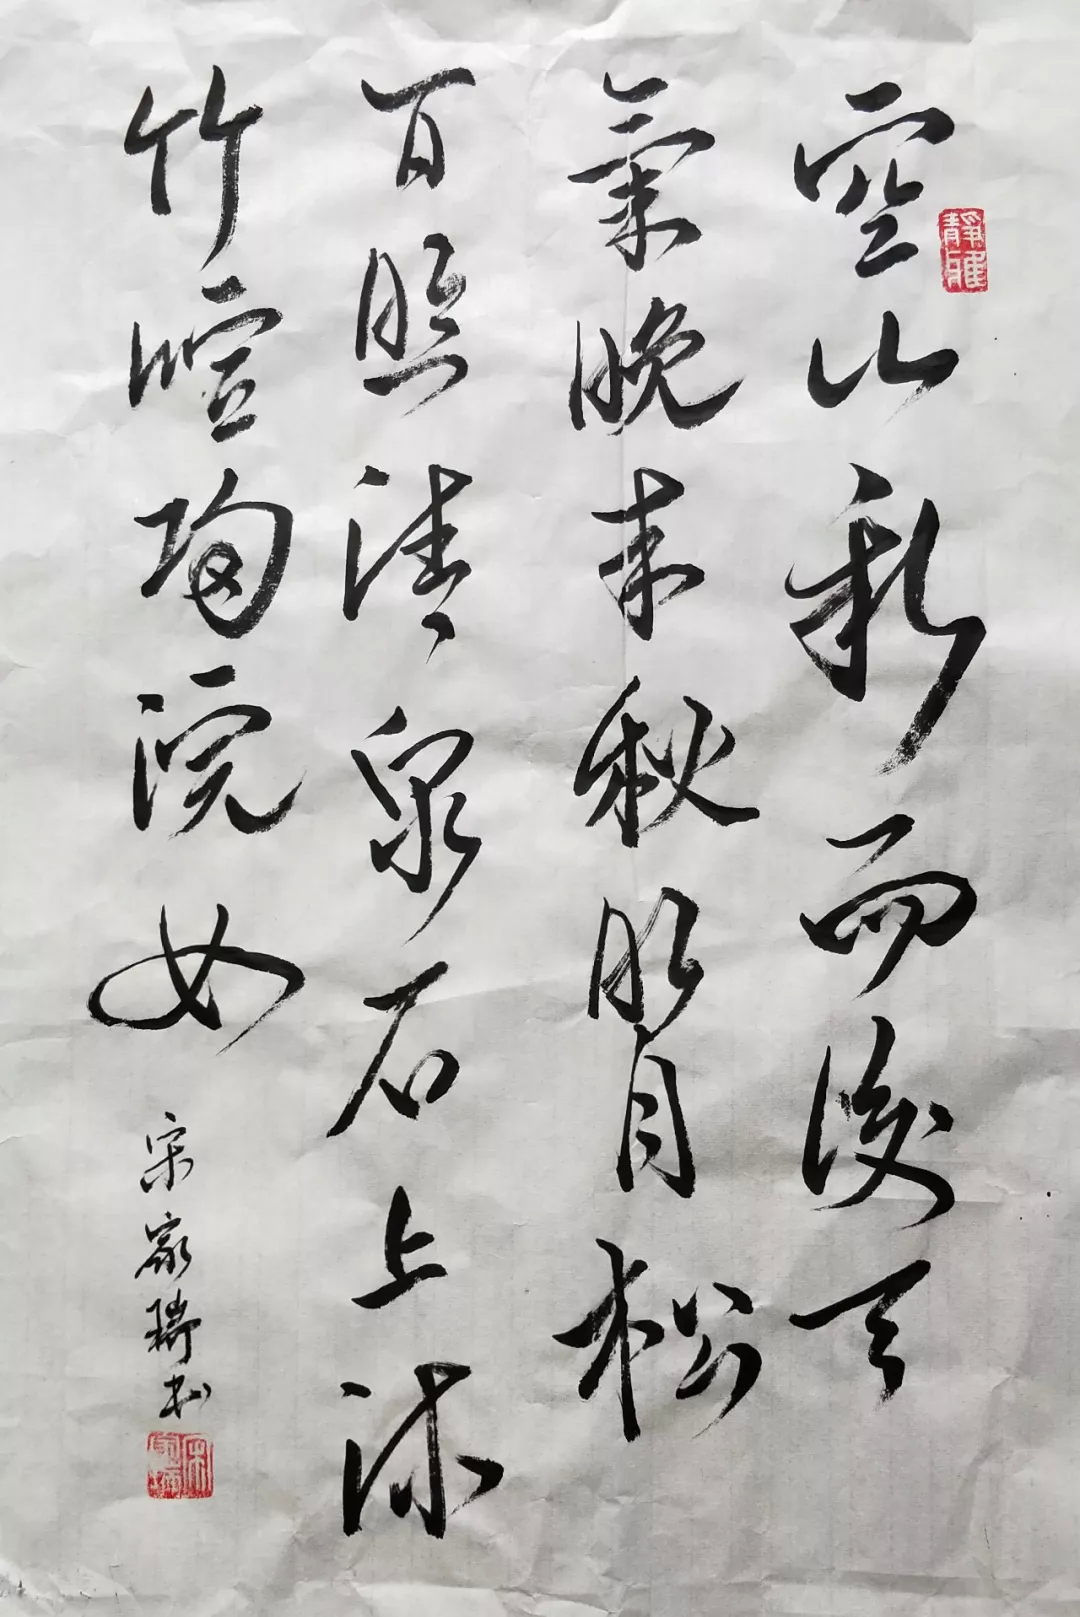 靜雅
空山新雨後天
氣晚来秋明月松
间照清泉石上流
竹喧歸浣女
宋家 书